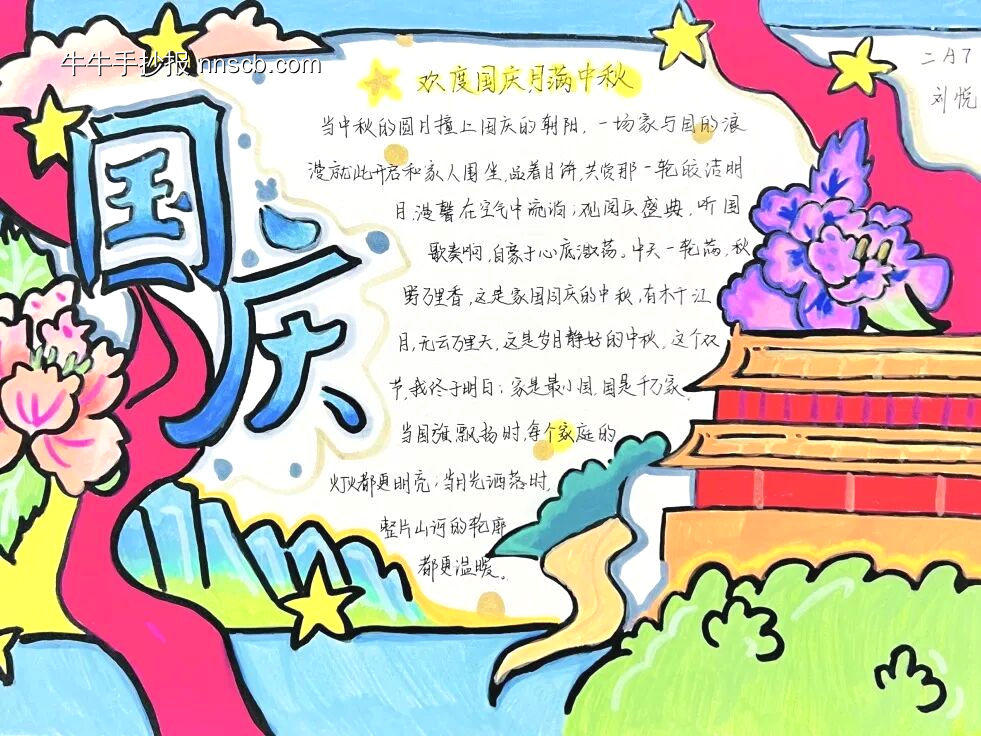 牛牛手抄报 nnscb.com
国庆
欢度国庆月满中秋
二月7
刘悦
当中秋的圆月撞上国庆的朝阳，一场家与国的浪
漫就此开启和家人围坐，品着月饼，共赏那一轮皎洁明
月，温馨在空气中流淌；观阅兵盛典，听国
歌奏响，自豪于心底激荡。中天一轮满，秋
野万里香，这是家国同庆的中秋，有木千江
月，无云万里天，这是岁月静好的中秋，这个双
节，我终于明白：家是最小国，国是千万家。
当国旗飘扬时，每个家庭的
灯火都更明亮；当月光洒落时，
整片山河的轮廓
都更温暖。